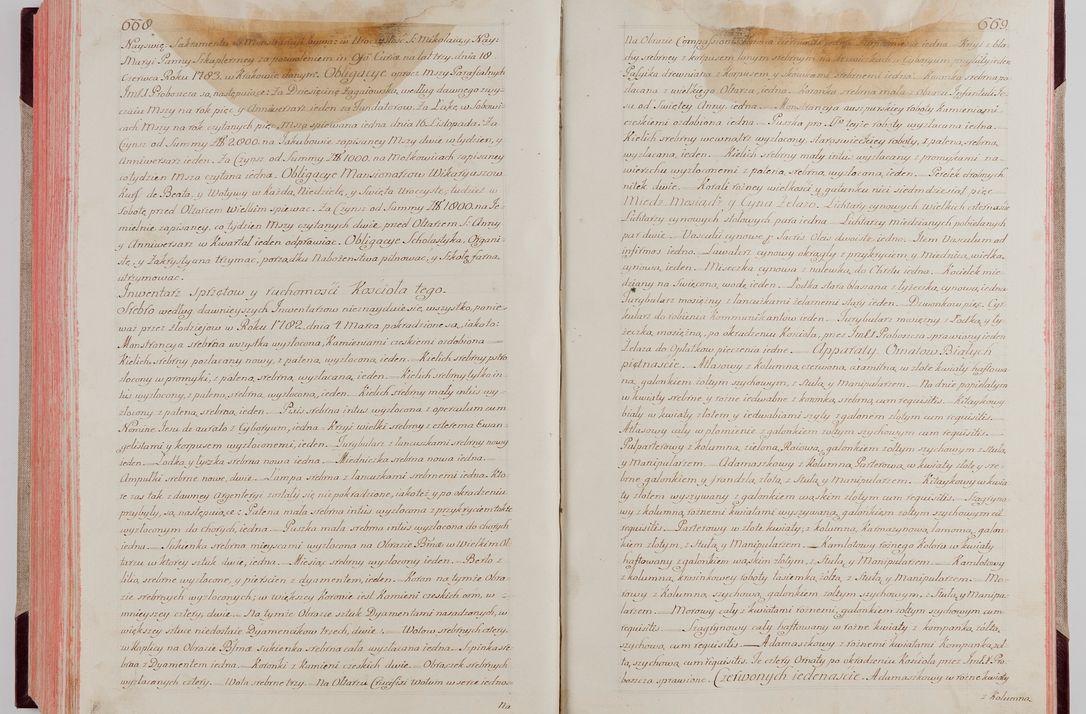 668.
Nayswię: Sakramentu w Monstrancyi bywać w Uroczystość S. Mikołaia, y Nay:
Maryi Panny Szkaplerzney za pozwoleniem in Offo Curia na lat trzy, dnia 18
Czerwca Roku 1783. w Krakowie danym. Obligacye oprocz Mszy Parafialnych
Jmći X Proboszcza są, następuiące: Za Dziesięcinę Łagiowską, według dawnego zwy:
czaiu Mszy na rok pięć, y Anniwersarz ieden za Fundatorow. Za Łąkę, w
cach Mszy na rok czytanych pięć, Msza spiewana iedna dnia 16 Listopada. Za
Czynsz od Summy 2000. na Jakubowie zapisaney Mszy dwie w tydzien, y
Anniwersarz ieden. Za Czynsz od Summy 1000. na Motkowicach zapisaney
co tydzien Msza czytana iedna. Obligacye Mansionarzow Wikaryuszow
Kurs. de Beata, y Wotywy w każdą Niedzielę, y Swięta Uroczyste, tudzież w
Sobotę przed Ołtarzem Wielkim spiewac. Za Czynsz od Summy 1800. na Je:
mielnie zapisaney, co tydzien Mszy czytanych dwie, przed Ołtarzem S. Anny
y Anniwersarz w Kwartał ieden odprawiac. Obligacye Scholastyka, Organi:
stę, y Zakrystyana trzymac, porządku Nabożenstwa pilnowac, y Szkołę farną
utrzymowac.
Inwentarz Sprzętow y ruchomości Kościoła tego.
Srebro według dawnieyszych Inwentarzow nie znayduie się, wszystko, ponie:
waż przez złodzieiow w Roku 1782. dnia 1 Marca pokradzione są, iako to:
Monstrancya srebrna wszytka wyzłocona, Kamieniami czeskiemi ozdobiona
Kielich srebrny pozłacany nowy, z pateną, wyzłoconą ieden. Kielich srebrny pstro
złocony w promyki, z pateną srebrną, wyzłacaną, ieden. Kielich srebrny tylko in:
tus wyzłocony, z pateną srebrną, wyzłoconą, ieden. Kielich srebrny mały intus wy:
złocony z pateną srebrną, ieden. Puszka srebrna intus wyzłocona z operculum cum
Nomine Jesu de aurato z Cyboryum, iedna. Krzyż wielki srebrny z czterema Ewan:
gelistami y korpusem wyzłoconemi, ieden. Turybularz z łancuszkami srebrny nowy
ieden. Łodka y łyszka srebrna nowa iedna. Miedniczka srebrna nowa iedna.
Ampułki srebrne nowe, dwie. Lampa srebrna z łancuszkami srebrnemi iedna. Kto:
re zas tak z dawney Argenteryi zostały się nie pokradzione, iako też y po okradzeniu
przybyły, są następuiące: Patena mała srebrna intus wyzłocona z przykryciem także
wyzłoconym do chorych, iedna. Puszka mała srebrna intus wyzłocona do chorych
iedna. Sukienka srebrna mieyscami wyzłocona na Obrazie BMæ w Wielkim Oł:
tarzu w ktorey sztuk dwie, iedna. Miesiąc srebrny wyzłocony ieden. Berło z
lilią srebrne wyzłocone, y pierścien z dyamentem, ieden. Koron na tymże Obra:
zie srebrnych wyzłoconych, w większey Koronie iest Kamieni czeskich osm, w:
mnieyszey cztery, dwie. Na tymże Obrazie sztuk Dyamentami nasadzonych, w
większey sztuce niedostaie Dyamencikow trzech, dwie. Wotow srebrnych cztery.
w Kaplicy na Obrazie BMæ sukienka srebrna cała wyzłacana iedna. Spinka sre:
brna z Dyamentem iedna. Koronki z Kamieni czeskich dwie. Obrączek srebrnych
wyzłacanych cztery. Wola srebrne trzy. Na Ołtarzu Crucifixi Wotum w serce iedno.
Na

669.
Na Obrazie Compassionis Korona iedna. Krzyż z bla:
chy srebrney z korpusem lanym srebrnym na
Pasyika drewniana z korpusem y skowkami srebrnemi iedna. Koronka srebrna po:
złacana z wielkiego Ołtarza, iedna. Koronka srebrna mała z Obrazu Infantuli Je:
su od Swiętey Anny, iedna. Monstrancya auszpurskiey roboty Kamieniami
czeskiemi ozdobiona iedna. Puszka pro teyże roboty wyzłacana iedna.
Kielich srebrny wewnątrz wyzłocony, staroswieckiey roboty, z pateną srebrną,
wyzłacaną, ieden. Kielich srebrny mały intus wyzłacany z promykami na:
wierzchu wyzłoconemi z pateną srebrną, wyzłoconą, ieden. Perełek drobnych
nitek dwie. Korali rożney wielkości y gatunku nici siedmdziesiąt pięć.
Miedź Mosiądz y Cyna Żelazo. Lichtarzy cynowych wielkich czternaście
Lichtarzy cynowych stołowych para iedna. Lichtarzy miedzianych pobielanych
par dwie. Vasculi cynowe pro Sacris Oleis dwoiste, iedno. Item Vasculum ad
infirmos iedno. Lawaterz cynowy okrągły z przykryciem, y Miednica, wielka
cynowa, ieden. Miseczka cynowa z nalewką, do Chrztu iedna. Kociołek mie:
dziany na Swięconą, wodę, ieden. Łodka stara blaszana z łyżeczką cynową, iedna
Turybularz mosiężny z łancuszkami żelaznemi stary ieden. Dzwonkow pięć. Cyr:
kularz do robienia kommunikantow ieden. Turybularz mosiężny z Łodką, y ły:
żeczką mosiężną, po okradzeniu Kościoła, przez Jmći X Proboszcza sprawiony ieden
Żelaza do Opłatkow pieczenia iedne. Apparaty Ornatow Białych
piętnascie. Atłasowy z Kolumną czerwoną, axamitną, w złote kwiaty haftowa:
ną, galonkiem żołtym szychowym, z Stułą, y Manipularzem. Na dnie popielatym
w kwiaty srebrne y rożne iedwabne z koronką, srebrną, cum requisitis. Kitaykowy
biały w kwiaty złotem y iedwabiami szyty z galonem złotym cum requisitis.
Atłasowy cały w płomienie z galonkiem żołtym szychowym cum requisitis.
Pułparterowy z kolumną zieloną, Raisową, galonkiem żołtym szychowym z Stułą,
y Manipularzem. Adamaszkowy z Kolumną Parterową, w kwiaty złote y sre:
brne galonkiem y frandzlą, złotą, z Stułą, y Manipularzem. Kitaykowy w kwia:
ty złotem wyszywany z galonkiem wąskim złotym cum requisitis. Szagryno:
wy z kolumną rożnemi kwiatami wyszywaną, galonkiem żołtym szychowym ez
requisitis. Parterowy w złote kwiaty, z kolumną, karmazynową, lamową, galon:
kiem złotym, z Stułą, y Manipularzem. Kamlotowy rożnego koloru w kwiaty
haftowany z galonkiem wąskim złotym, z Stułą, y Manipularzem. Kamlotowy
z kolumną, krosinkowey roboty tasiemką, żołtą, z Stułą, y Manipularzem. Mo:
rowy z Kolumną, szychową, galonkiem żołtym szychowym, z Stułą, y Manipu:
larzem. Morowy cały z kwiatami rożnemi, galonkiem żołtym szychowym cum
requisitis. Szagrynowy cały haftowany w rożne kwiaty z kompanką, żołtą,
szychową, cum requisitis. Adamaszkowy z rożnemi kwiatami Kompanką żoł:
tą, szychową cum requisitis. Te cztery Ornaty po okradzeniu Kościoła przez Jmći X Pro:
boszcza sprawione. Czerwonych iedenascie. Adamaszkowy w rożne kwiaty
z Kolumną